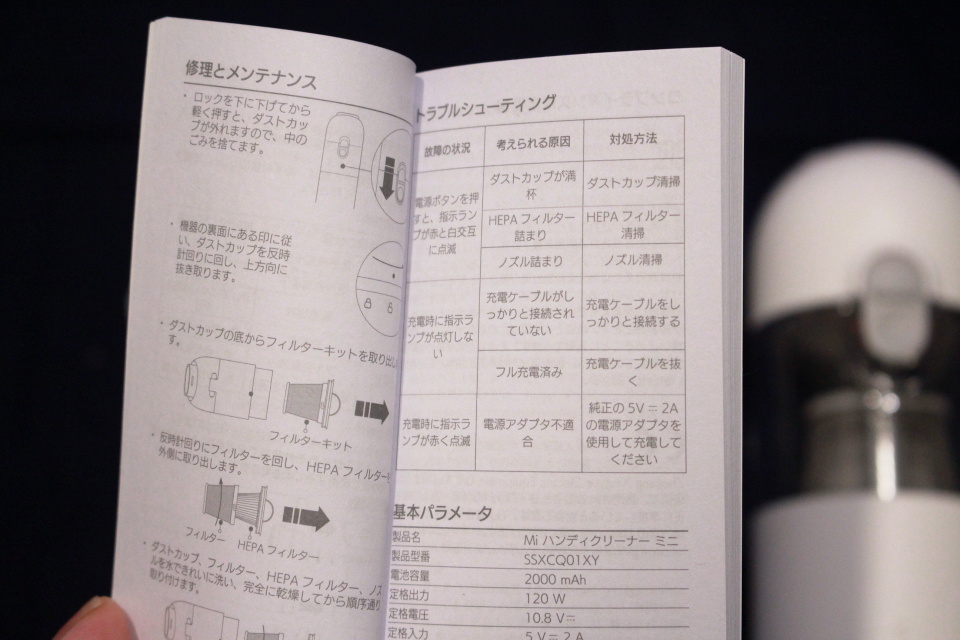 修理とメンテナンス
・ロックを下に下げてから
軽く押すと、ダストカッ
プが外れますので、中の
ごみを捨てます。
・機器の裏面にある印に従
い、ダストカップを反時
計回りに回し、上方向に
抜き取ります。
・ダストカップの底からフィルターキットを取り出し
す。
フィルターキット
・反時計回りにフィルターを回し、HEPA フィルターを
外側に取り出します。
フィルター
HEPA フィルター
・ダストカップ、フィルター、HEPA フィルター、ノズ
ルを水できれいに洗い、完全に乾燥してから順序通り
取り付けます。
トラブルシューティング
故障の状況
考えられる原因
対処方法
電源ボタンを押
すと、指示ラン
プが赤と白交互
に点滅
ダストカップが満
杯
ダストカップ清掃
HEPA フィルター
詰まり
HEPA フィルター
清掃
ノズル詰まり
ノズル清掃
充電時に指示ラ
ンプが点灯しな
い
充電ケーブルがし
っかりと接続され
ていない
充電ケーブルをし
っかりと接続する
フル充電済み
充電ケーブルを抜
く
充電時に指示ラ
ンプが赤く点滅
電源アダプタ不適
合
純正の 5V⎓2A
の電源アダプタを
使用して充電して
ください
基本パラメータ
製品名 Mi ハンディクリーナー ミニ
製品型番 SSXCQ01XY
電池容量 2000 mAh
定格出力 120 W
定格電圧 10.8 V⎓
定格入力 5 V⎓2 A